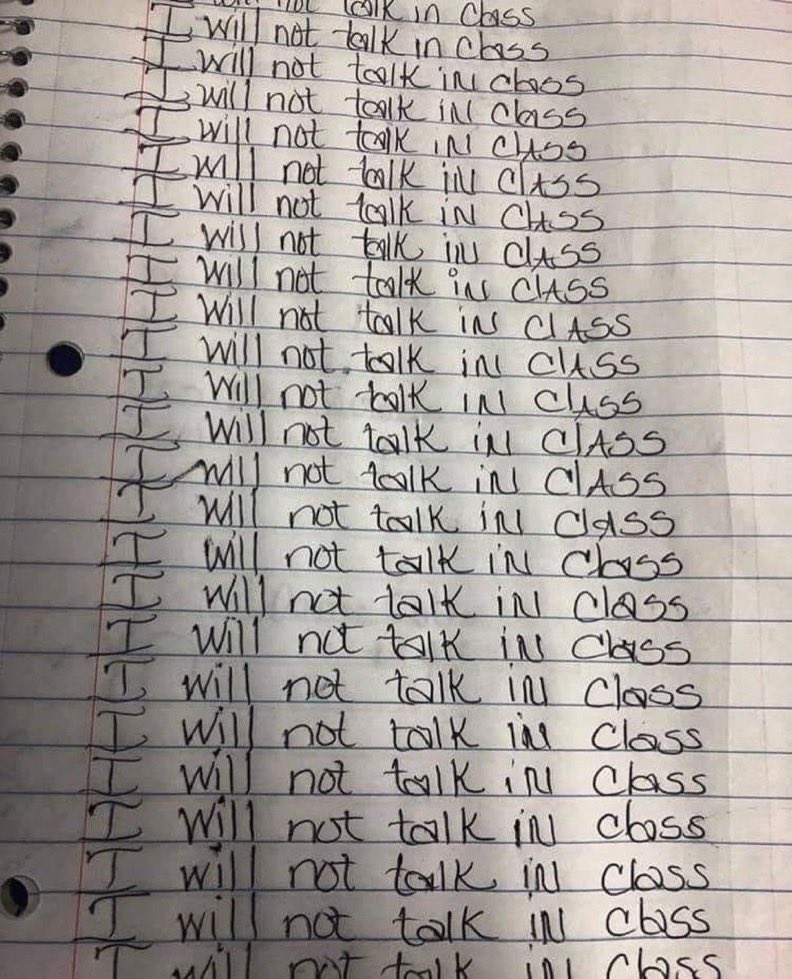 will not talk in Class
I will not talk in Class
I will not talk iN Class
I will not talk iN Class
I will not talk iN ClASS
I will not talk iN ClASS
I will not talk iN ClASS
I will not talk iN ClASS
I will not talk iN ClASS
I will not talk iN ClASS
I will not talk iN ClASS
I will not talk iN ClASS
I will not talk iN ClASS
I will not talk iN ClASS
I will not talk iN Class
I will not talk iN Class
I will not talk iN Class
I will not talk iN Class
I will not talk iN Class
I will not talk iN Class
I will not talk iN Class
I will not talk iN Class
I will not talk iN Class
I will not talk iN Class
I will not talk iN Class